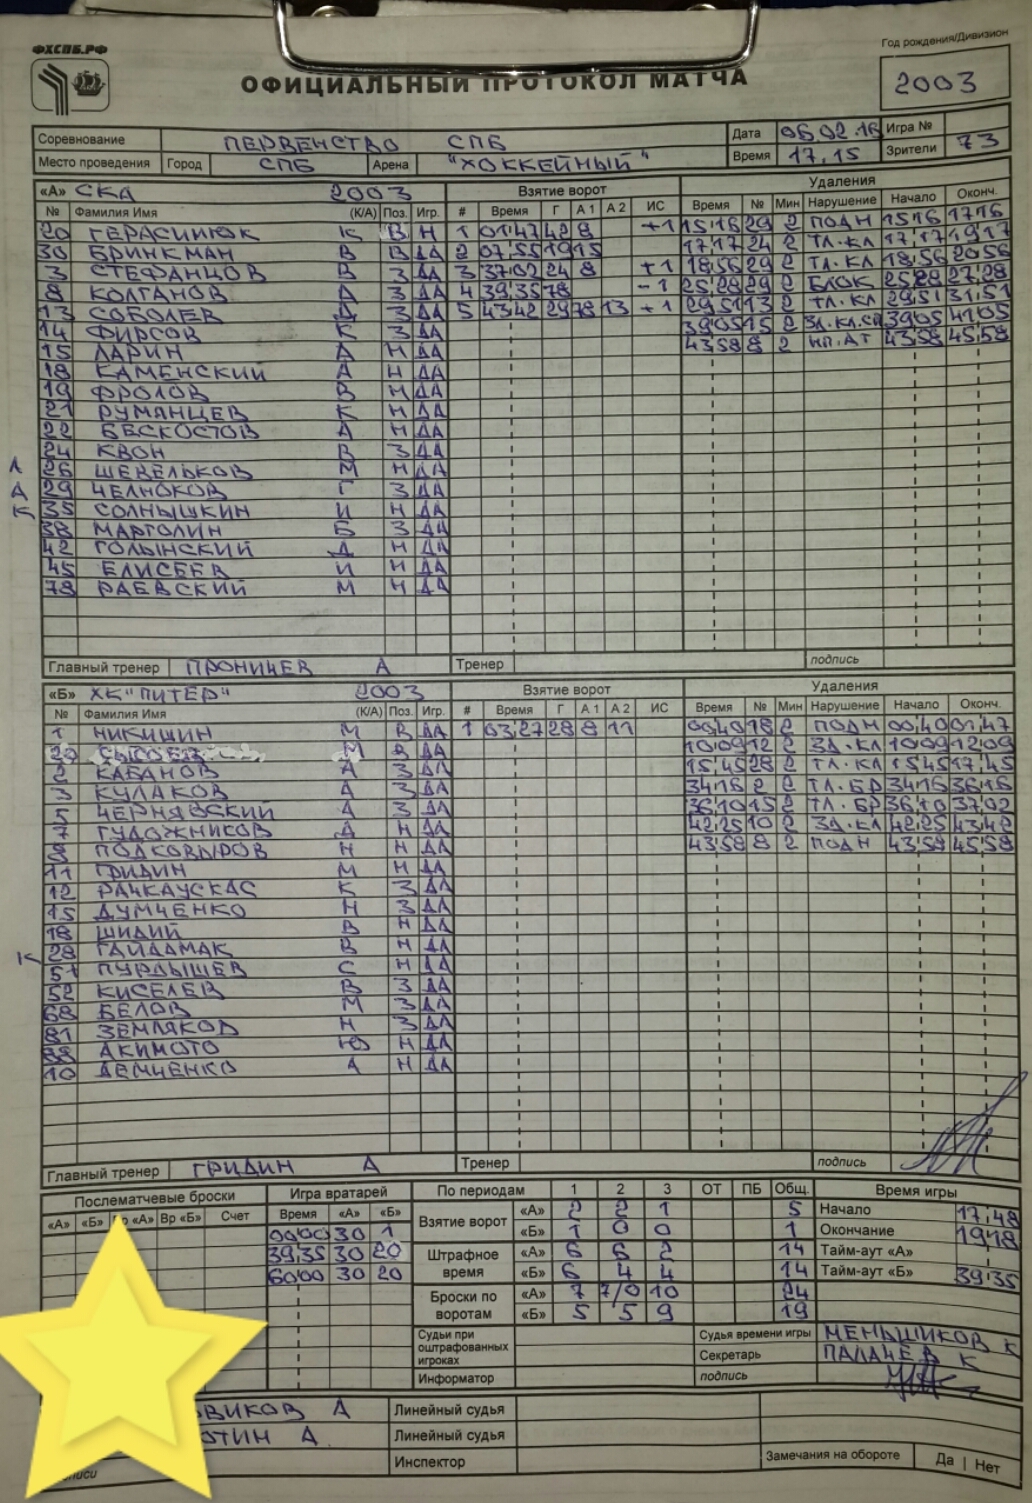 ФХСПБ.РФ
Год рождения/Дивизион
ОФИЦИАЛЬНЫЙ ПРОТОКОЛ МАТЧА
2003
Соревнование ПЕРВЕНСТВО СПБ Дата 06.02.16 Игра №
Место проведения Город СПБ Арена "ХОККЕЙНЫЙ" Время 17.15 Зрители 73
«А» СКА 2003 Взятие ворот Удаления
№ Фамилия Имя (К/А) Поз. Игр. # Время Г А 1 А 2 ИС Время № Мин Нарушение Начало Оконч.
20 ГЕРАСИМЮК К В Н 1 01:47 42 8 +1 15:16 29 2 ПОДН 15:16 17:16
30 БРИНКМАН В В ДА 2 07:55 19 15 17:17 24 2 ТЛ.КЛ 17:17 19:17
3 СТЕФАНЦОВ В З ДА 3 37:02 24 8 +1 18:56 29 2 ТЛ.КЛ 18:56 20:56
8 КОЛГАНОВ Д З ДА 4 39:35 78 -1 25:28 29 2 БЛОК 25:28 27:28
13 СОБОЛЕВ Д З ДА 5 43:42 29 78 13 +1 29:51 13 2 ТЛ.КЛ 29:51 31:51
14 ФИРСОВ К З ДА 39:05 15 2 39:05 41:05
15 ЛАРИН А Н ДА 43:58 8 2 НП.АТ 43:58 45:58
18 КАМЕНСКИЙ А Н ДА
19 ФРОЛОВ В Н ДА
21 РУМАНЦЕВ К Н ДА
22 БЕСКОСТОВ А Н ДА
24 КВОН В З ДА
А 26 ШЕВЕЛЬКОВ М Н ДА
А 29 ЧЕЛНОКОВ Г З ДА
К 35 СОЛНЫШКИН И Н ДА
38 МАРГОЛИН Б З ДА
42 ГОЛЫНСКИЙ Д Н ДА
45 ЕЛИСЕЕВ И Н ДА
78 РАЕВСКИЙ М Н ДА
Главный тренер ПРОНИЧЕВ А Тренер подпись
«Б» ХК "ПИТЕР" 2003 Взятие ворот Удаления
№ Фамилия Имя (К/А) Поз. Игр. # Время Г А 1 А 2 ИС Время № Мин Нарушение Начало Оконч.
1 НИКИШИН М В ДА 1 03:27 28 8 11 00:40 18 2 ПОДН 00:40 01:47
20 М В ДА 10:09 12 2 ЗД.КЛ 10:09 12:09
2 КАБАНОВ А З ДА 15:45 28 2 ТЛ.КЛ 15:45 17:45
3 КУЛАКОВ А З ДА 34:16 2 2 ТЛ.БР 34:16 36:16
5 ЧЕРНЯВСКИЙ Д З ДА 36:10 15 2 ТЛ.БР 36:10 37:02
7 ГУДОЖНИКОВ Д Н ДА 42:25 10 2 ЗД.КЛ 42:25 43:42
8 ПОДКОВЫРОВ Н Н ДА 43:58 8 2 ПОДН 43:58 45:58
11 ГРИДИН М Н ДА
12 РАЧКАУСКАС К З ДА
15 ДУМЧЕНКО Н З ДА
18 ШИДИЙ В Н ДА
К 28 ГАЙДАМАК В Н ДА
51 ПУРДЫШЕВ С Н ДА
52 КИСЕЛЕВ В З ДА
68 БЕЛОВ М З ДА
81 ЗЕМЛЯКОВ Н З ДА
88 АКИМОТО Ю Н ДА
10 ДЕМЧЕНКО А Н ДА
Главный тренер ГРИДИН А Тренер подпись
Послематчевые броски Игра вратарей По периодам 1 2 3 ОТ ПБ Общ. Время игры
«А» «Б» Вр «А» Вр «Б» Счет Время «А» «Б» Взятие ворот «А» 2 2 1 5 Начало 17,48
00:00 30 1 «Б» 1 0 0 1 Окончание 19,18
39:35 30 20 Штрафное время «А» 6 6 2 14 Тайм-аут «А»
60:00 30 20 «Б» 6 4 4 14 Тайм-аут «Б» 39:35
Броски по воротам «А» 7 7/0 10 24
«Б» 5 5 9 19
Судьи при оштрафованных игроках Судья времени игры МЕНЬШИКОВ К
Секретарь ПАЛАЧЕВ К
Информатор подпись
ОВИКОВ А Линейный судья
ОТИН А Линейный судья
Инспектор Замечания на обороте Да | Нет